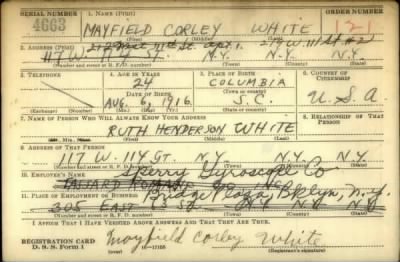 SERIAL NUMBER 1. NAME (Print) ORDER NUMBER
4663 MAYFIELD CORLEY WHITE 121
(First) (Middle) (Last)
2. ADDRESS (Print) 219 W 111 St #2
117 W. 114 ST. N.Y. N.Y. N.Y.
(Number and street or R. F. D. number) (Town) (County) (State)
3. TELEPHONE 4. AGE IN YEARS 5. PLACE OF BIRTH 6. COUNTRY OF CITIZENSHIP
24 COLUMBIA
DATE OF BIRTH (Town or county)
AUG. 6, 1916. S.C. U.S.A
(Exchange) (Number) (Mo.) (Day) (Yr.) (State or country)
7. NAME OF PERSON WHO WILL ALWAYS KNOW YOUR ADDRESS 8. RELATIONSHIP OF THAT PERSON
RUTH HENDERSON WHITE
(Mr., Mrs., Miss) (First) (Middle) (Last)
9. ADDRESS OF THAT PERSON
117 W. 114 ST. N.Y. N.Y. N.Y.
(Number and street or R. F. D. number) (Town) (County) (State)
10. EMPLOYER'S NAME Sperry Gyroscope Co
11. PLACE OF EMPLOYMENT OR BUSINESS Bridge Plaza, Bklyn, N.Y.
305 EAST ST. NY NY NY
(Number and street or R. F. D. number) (Town) (County) (State)
I AFFIRM THAT I HAVE VERIFIED ABOVE ANSWERS AND THAT THEY ARE TRUE.
REGISTRATION CARD
D. S. S. Form 1 16—17105 Mayfield Corley White
(Registrant's signature)